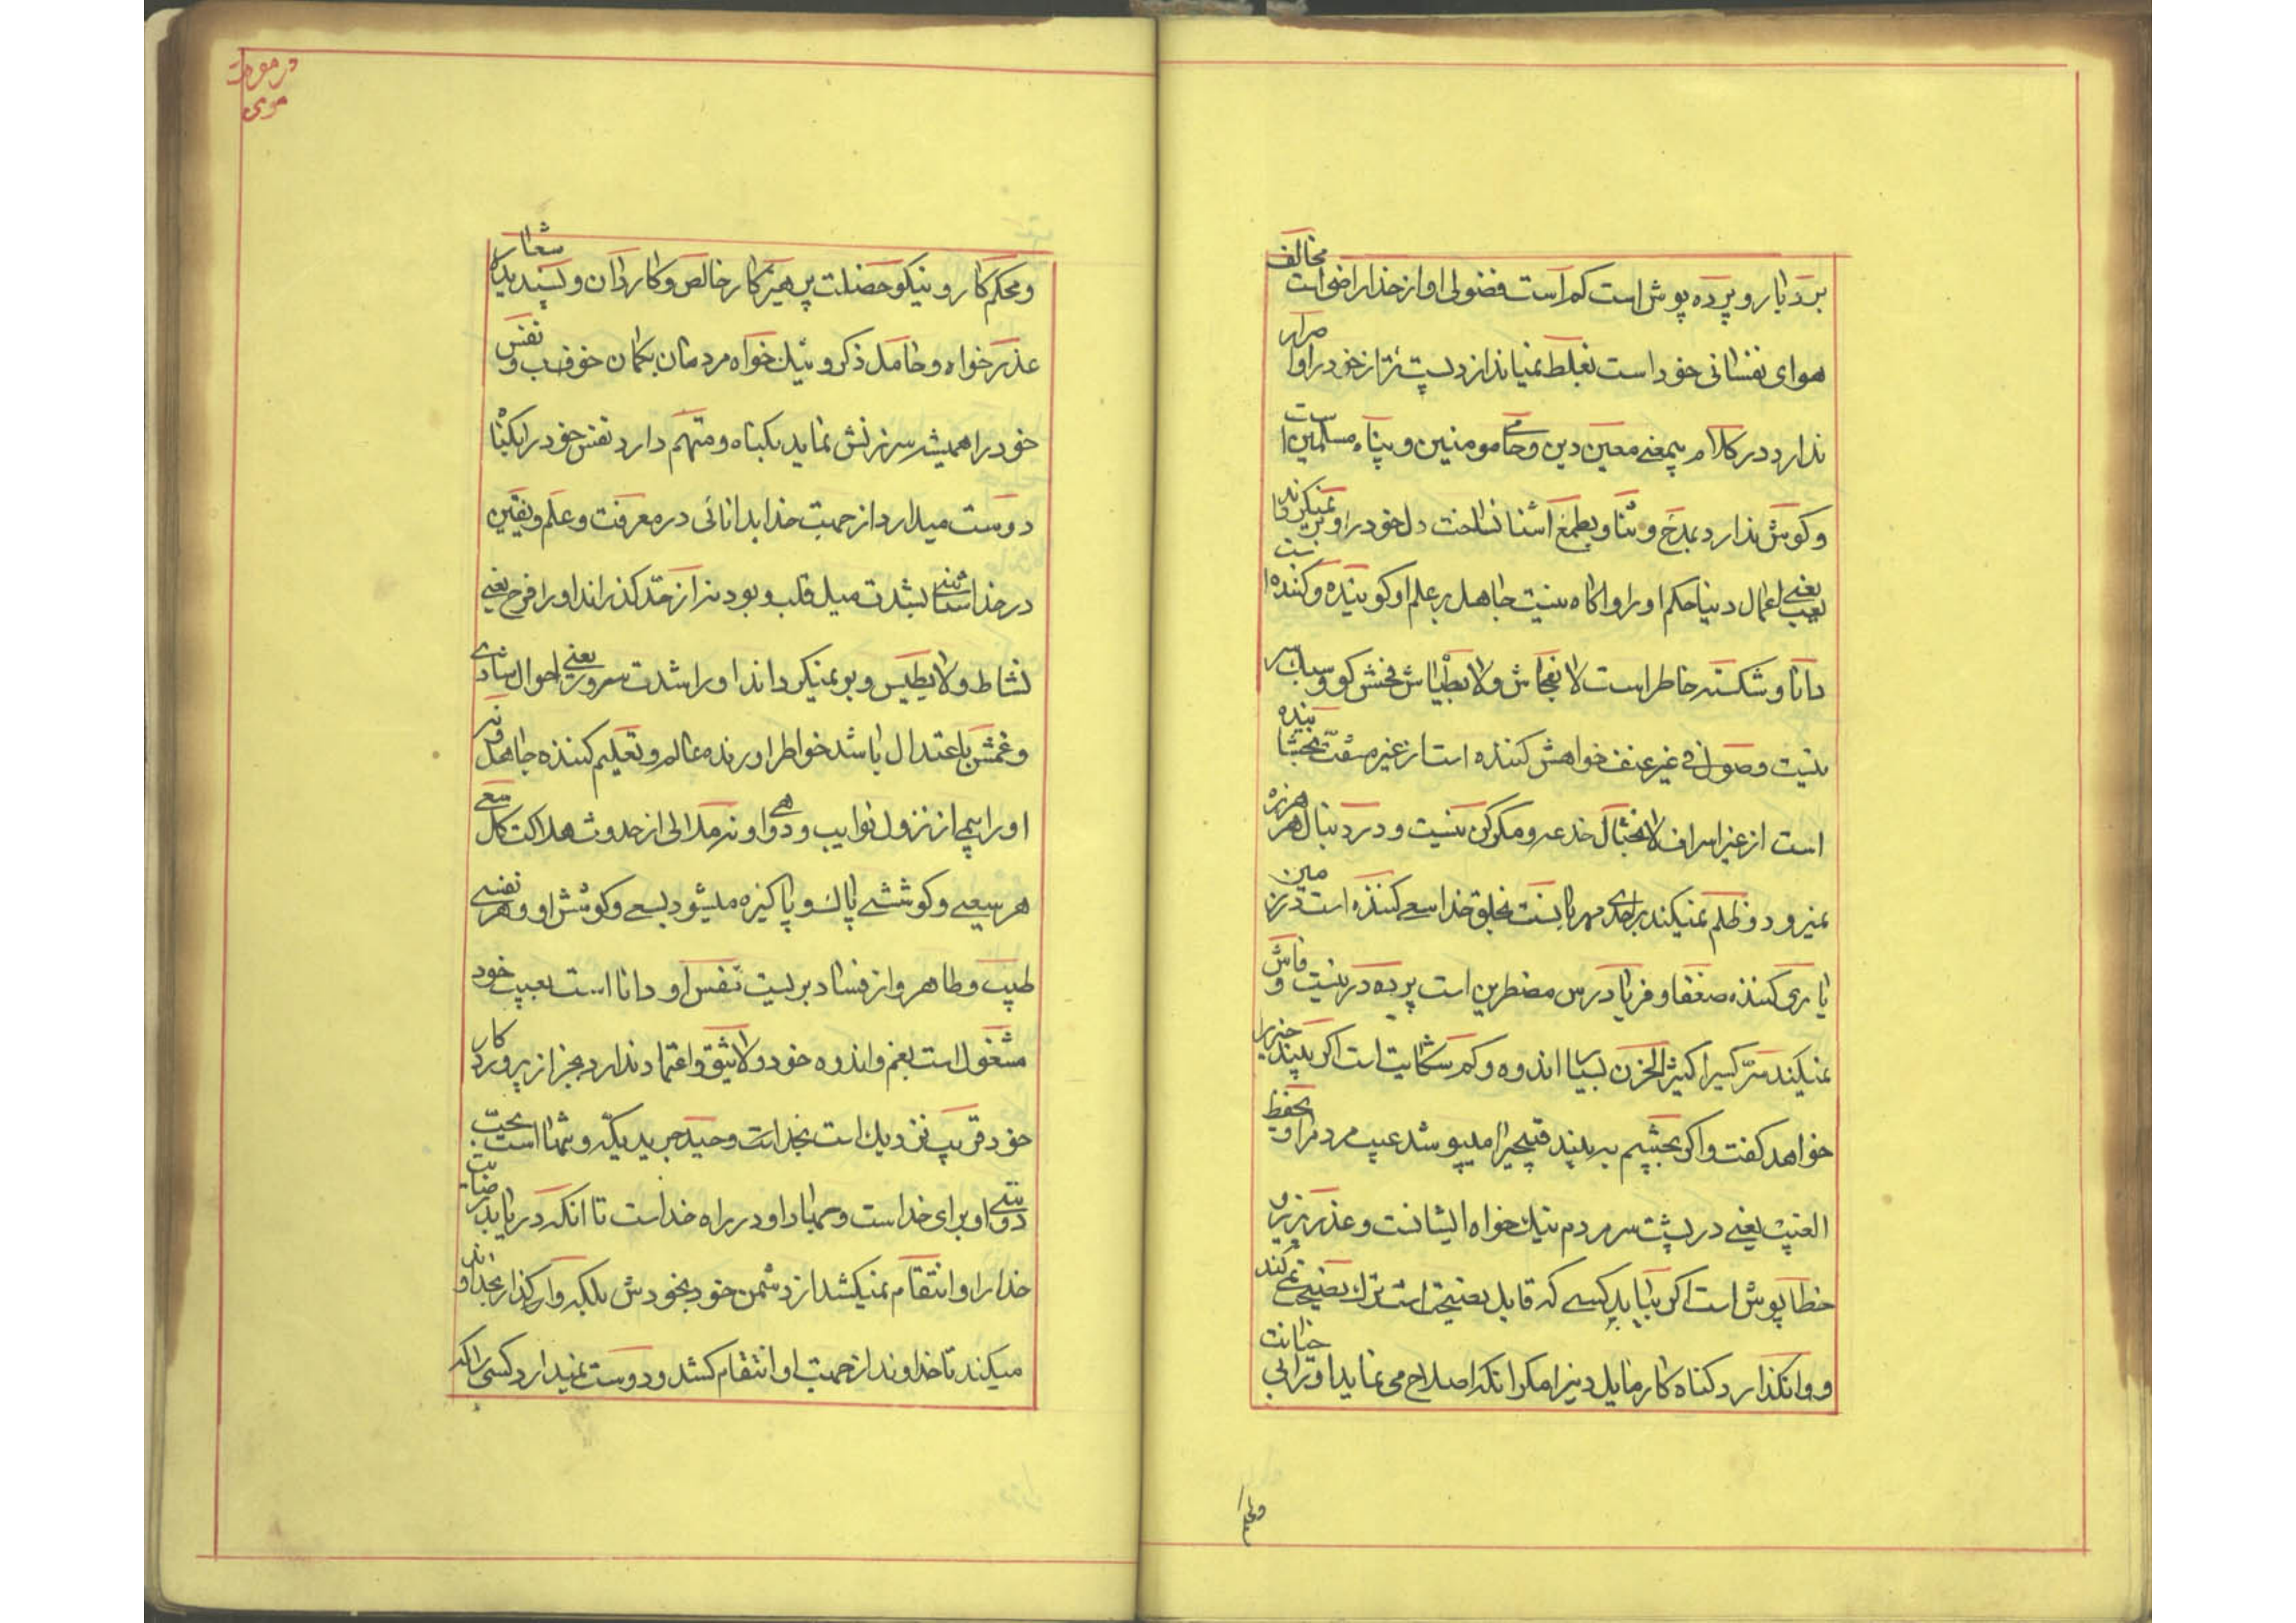 بردبار و پرده پوش است کم است فضولی او از خدا راضی است مخالف
هوای نفسانی خود است بغلط نمیاندازد پست تر از خود را و اصرار
ندارد در کلام بیمعنی معین دین و حامی مومنین و پناه مسلمین است
و کوش ندارد بمدح و ثنا و بطمع اشنا نساخت دل خود را و برنمیکرداند
یعنی بعیب اعمال دنیا حکم او را و اکاه نیست جاهل بر علم او کوینده و کننده است
دانا و شکسته خاطر است لا بفحاش و لا بطیاش فحش کو و سبک سر
نیست وصول فی غیر عنف خواهش کننده است از غیر مشقت بخشاینده
است از غیر اسراف لا بختال خدعه و مکر کن نیست و در دنبال هرزه
نمیرود و ظلم نمیکند براحدی مهربانست بخلق خدا سعی کننده است در زمین
یاری کننده ضعفا و فریادرس مضطرین است پرده در نیست و فاش
نمیکند سر کسیرا کثیر الحزن بسیار اندوه و کم شکایت است اکر به بیند خیر را
خواهد کفت و اکر بچشم به بیند قبیحیرا میپوشد عیب مردم را و یحفظ
الغیب یعنی در پشت سر مردم نیک خواه ایشانست و عذر پزیر و
خطاپوش است اکر بیابد کسی که قابل نصیحت است ترک نصیحت نمی کند
و وانکذارد کناه کار مایل دنیرا مکر انکه اصلاح می نماید او را بی خیانت
و محکم
در موعظه
موسی
و محکم کار و نیکو خصلت پرهیز کار خالص و کاردان و پسندیده شعار
عذر خواه و حامل ذکر و نیک خواه مردمان بکمان خوف و نفس
خود را همیشه سرزنش نماید بکناه و متهم دارد نفس خود را بکناه
دوست میدارد از جهت خدا بدانائی در معرفت و علم و یقین
در خدا شناسی بشدت میل قلب و بود نیز از حد نکذراند او را فرح یعنی
نشاط و لا یطیس و بو نمیکرداند او را شدت سرور یعنی احوال شادی
و غمش باعتدال باشد خواطر اورنده عالم و تعلیم کننده جاهل و نه
او را بیمی از نزول نوایب و دواهی و نه ملالی از حدوث هلاکت کل سعی
هر سعی و کوششی پاک و پاکیزه میشود بسعی و کوشش او و هر نفسی
طیب و طاهر و از فساد بریست نفس او دانا است بعیب خود
مشغول است بغم و اندوه خود و لا یثق و اعتماد ندارد بجز از پروردکار
خود قریب نزدیک است بخدا است وحید جرید یکه و تنها است بحب
دوستی او برای خدا است و جهاد او در راه خدا است تا انکه دریابد رضایت
خدا را و انتقام نمیکشد از دشمن خود بخودش بلکه واکذار بخدا و اند
میکند تا خداوند از جهت او انتقام کشد و دوست نمیدارد کسی را که